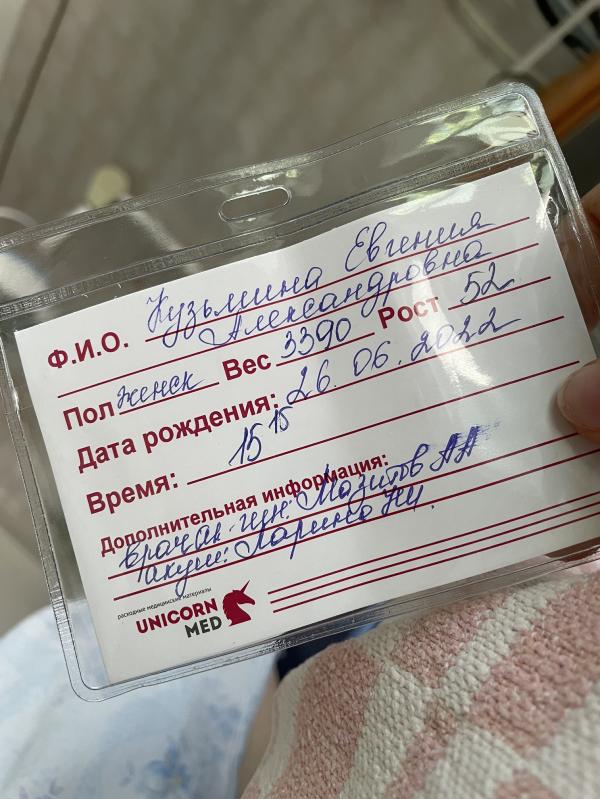 Ф.И.О. Кузьмина Евгения
Александровна
Пол женск Вес 3390 Рост 52
Дата рождения: 26.06.2022
Время: 15 15
Дополнительная информация:
врач ак-гин: Мазитов АА
акуш: Ларина НИ.
расходные медицинские материалы
UNICORN
MED